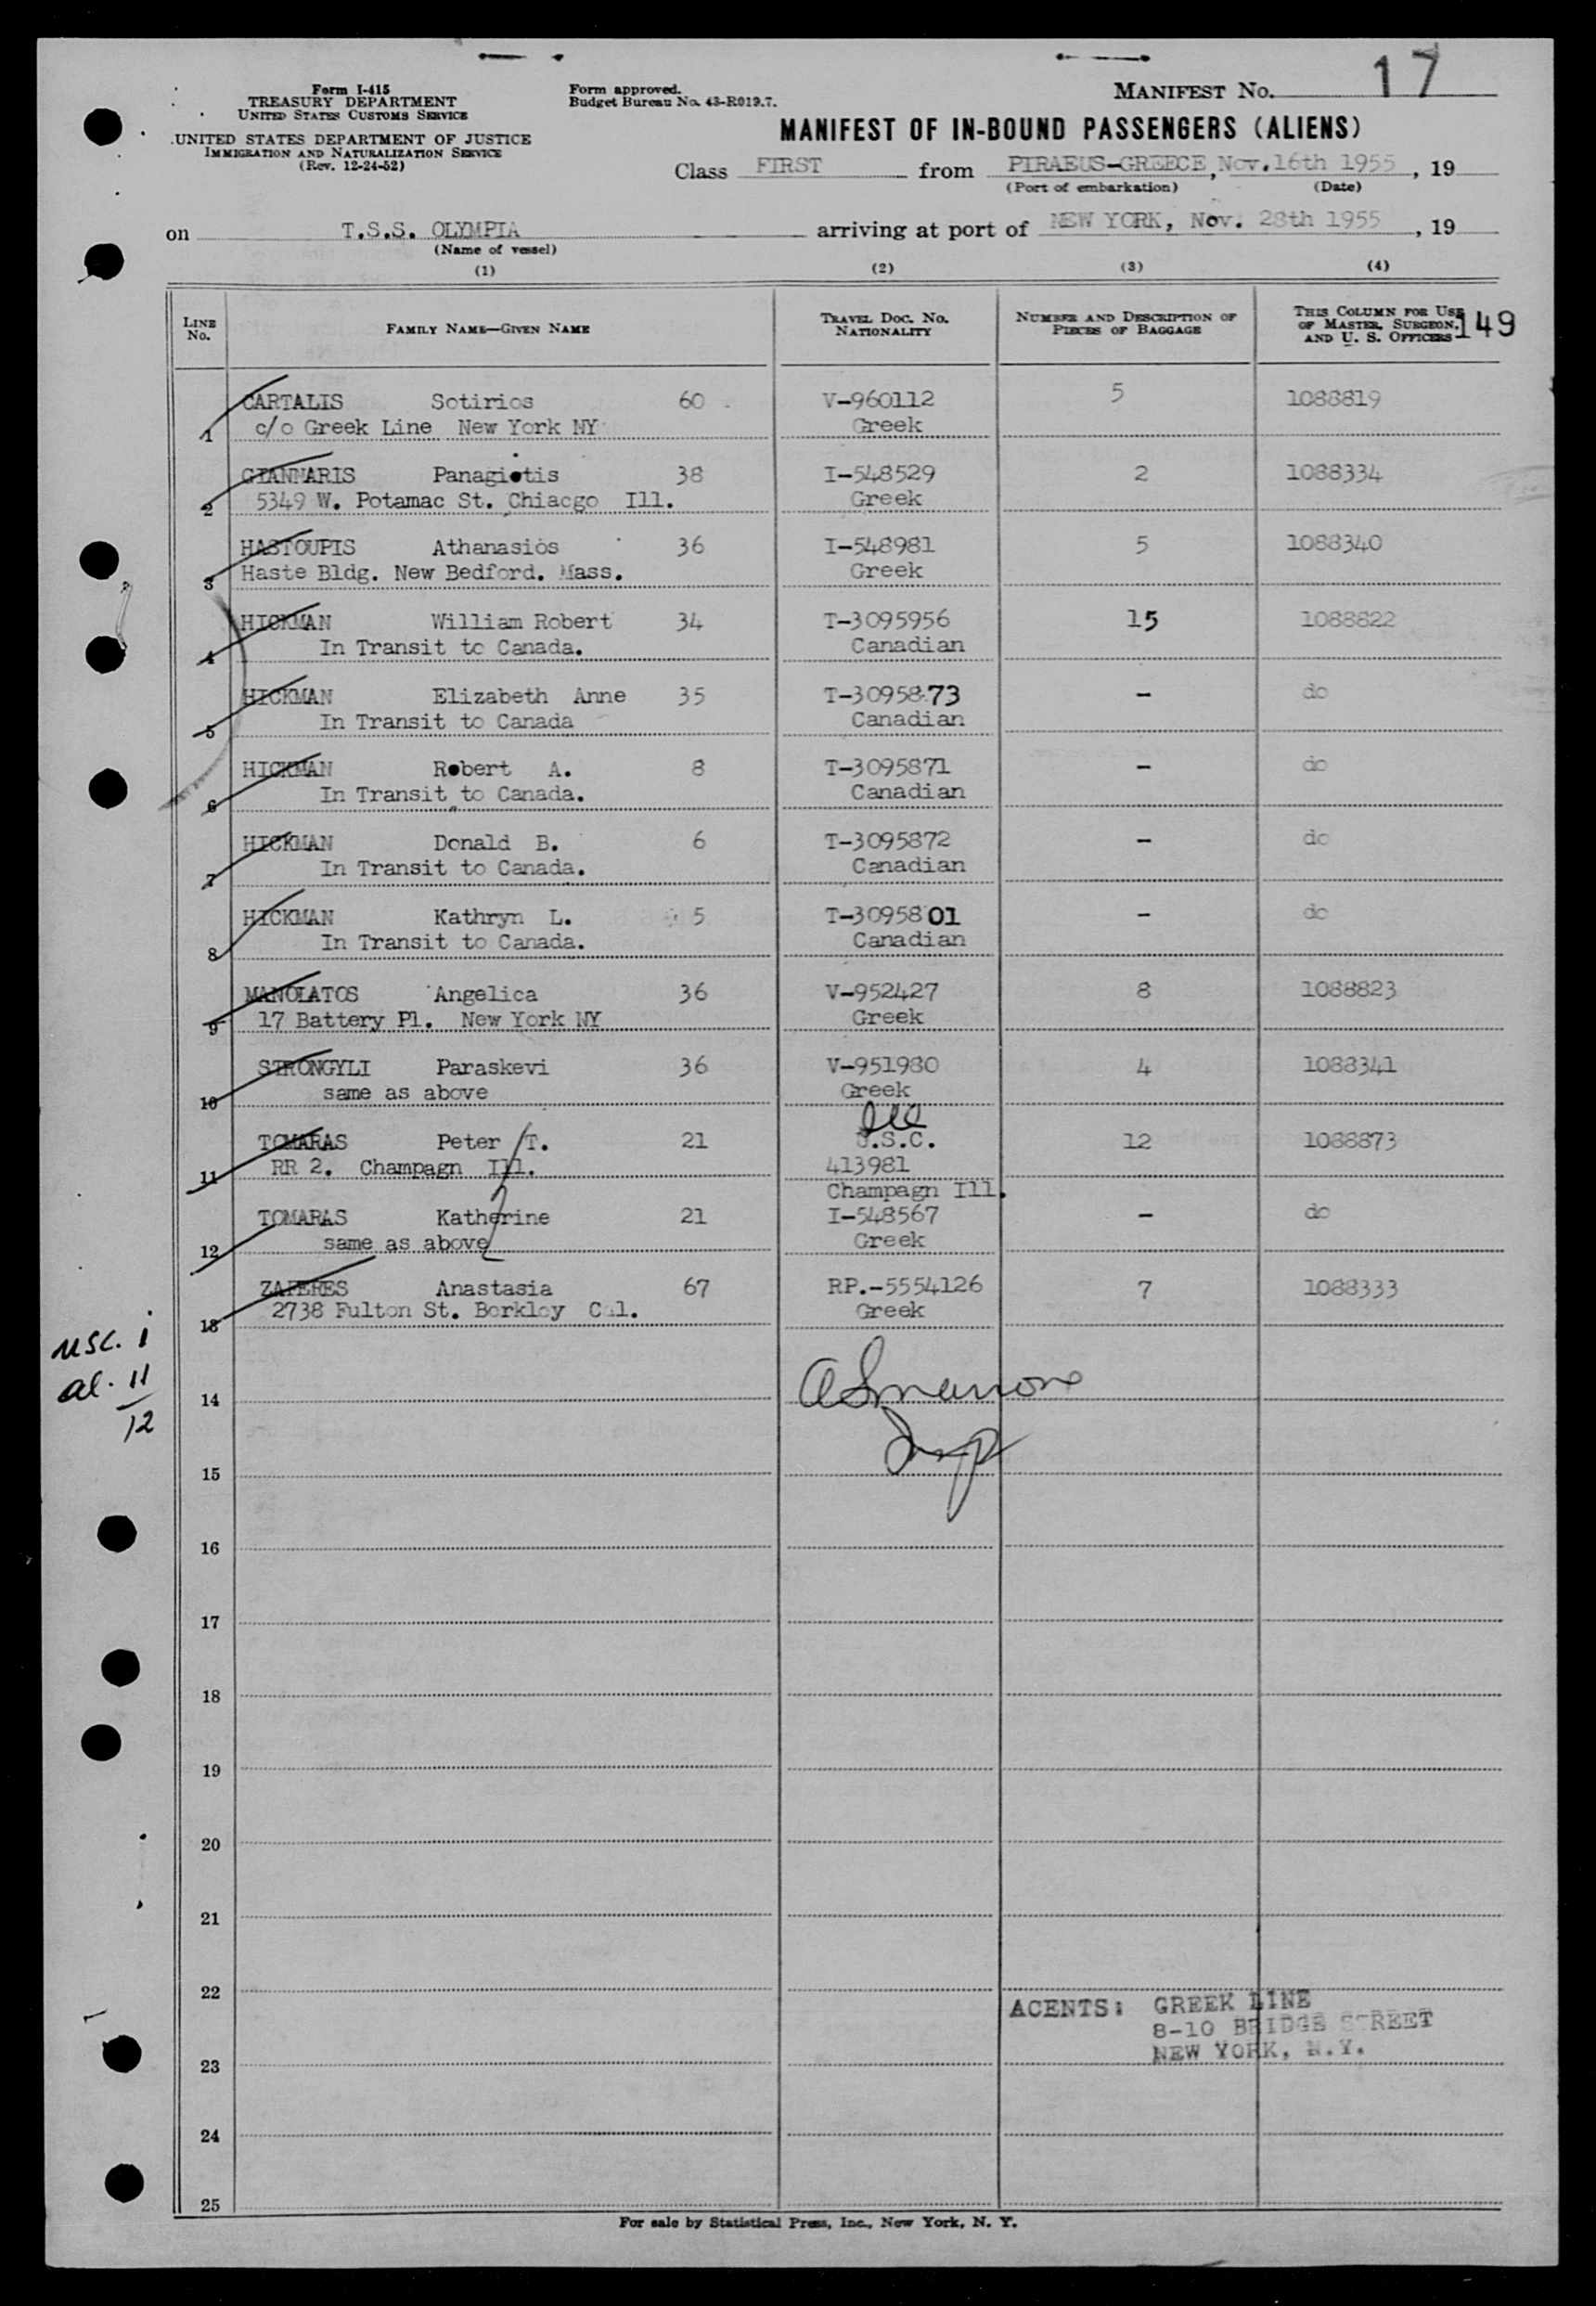 Form I-415
TREASURY DEPARTMENT
UNITED STATES CUSTOMS SERVICE
UNITED STATES DEPARTMENT OF JUSTICE
IMMIGRATION AND NATURALIZATION SERVICE
(Rev. 12-24-52)
Form approved.
Budget Bureau No. 43-R019.7.
MANIFEST No. 17
MANIFEST OF IN-BOUND PASSENGERS (ALIENS)
Class FIRST from PIRAEUS-GREECE, Nov.16th 1955, 19
(Port of embarkation) (Date)
on T.S.S. OLYMPIA arriving at port of NEW YORK, Nov. 28th 1955, 19
(Name of vessel)
(1) (2) (3) (4)
LINE No. FAMILY NAME—GIVEN NAME TRAVEL DOC. No. NATIONALITY NUMBER AND DESCRIPTION OF PIECES OF BAGGAGE THIS COLUMN FOR USE OF MASTER, SURGEON, AND U. S. OFFICERS 149
CARTALIS Sotirios 60 V-960112 5 1088819
1 c/o Greek Line New York NY Greek
GIANNARIS Panagiotis 38 I-548529 2 1088334
2 5349 W. Potamac St. Chiacgo Ill. Greek
HASTOUPIS Athanasios 36 I-548981 5 1088340
3 Haste Bldg. New Bedford. Mass. Greek
HICKMAN William Robert 34 T-3095956 15 1088822
4 In Transit to Canada. Canadian
HICKMAN Elizabeth Anne 35 T-3095873 - do
5 In Transit to Canada Canadian
HICKMAN Robert A. 8 T-3095871 - do
6 In Transit to Canada. Canadian
HICKMAN Donald B. 6 T-3095872 - do
7 In Transit to Canada. Canadian
HICKMAN Kathryn L. 5 T-3095801 - do
8 In Transit to Canada. Canadian
MANOLATOS Angelica 36 V-952427 8 1088823
9 17 Battery Pl. New York NY Greek
STRONGYLI Paraskevi 36 V-951980 4 1088341
10 same as above Greek
TOMARAS Peter T. 21 U.S.C. 12 1088873
11 RR 2. Champagn Ill. 413981
Champagn Ill.
TOMARAS Katherine 21 I-548567 - do
12 same as above Greek
ZAFERES Anastasia 67 RP.-5554126 7 1088333
13 2738 Fulton St. Berkley Cal. Greek
usc. 1
al. 11
12
14
Insp
15
16
17
18
19
20
21
22
ACENTS: GREEK LINE
8-10 BRIDGE STREET
NEW YORK, N.Y.
23
24
25
For sale by Statistical Press, Inc., New York, N. Y.